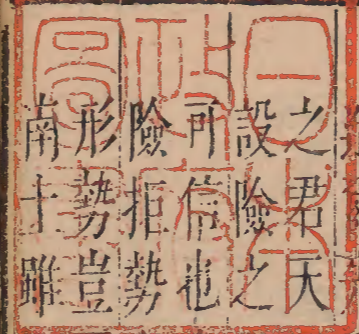 之君天
設險之
可信也
險拒勢
形勢豈
南十雖